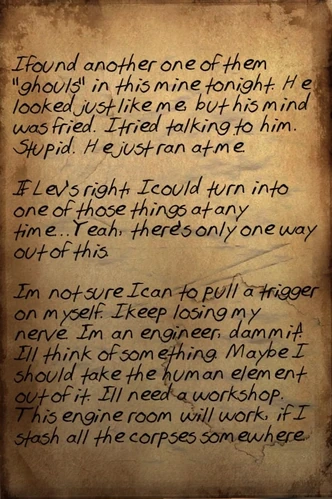 I found another one of them
"ghouls" in this mine tonight. He
looked just like me, but his mind
was fried. I tried talking to him.
Stupid. He just ran at me
If Lev's right, I could turn into
one of those things at any
time...Yeah, there's only one way
out of this.
Im not sure I can to pull a trigger
on myself. I keep losing my
nerve. Im an engineer, dammit.
Ill think of something. Maybe I
should take the human element
out of it. Ill need a workshop.
This engine room will work, if I
stash all the corpses somewhere